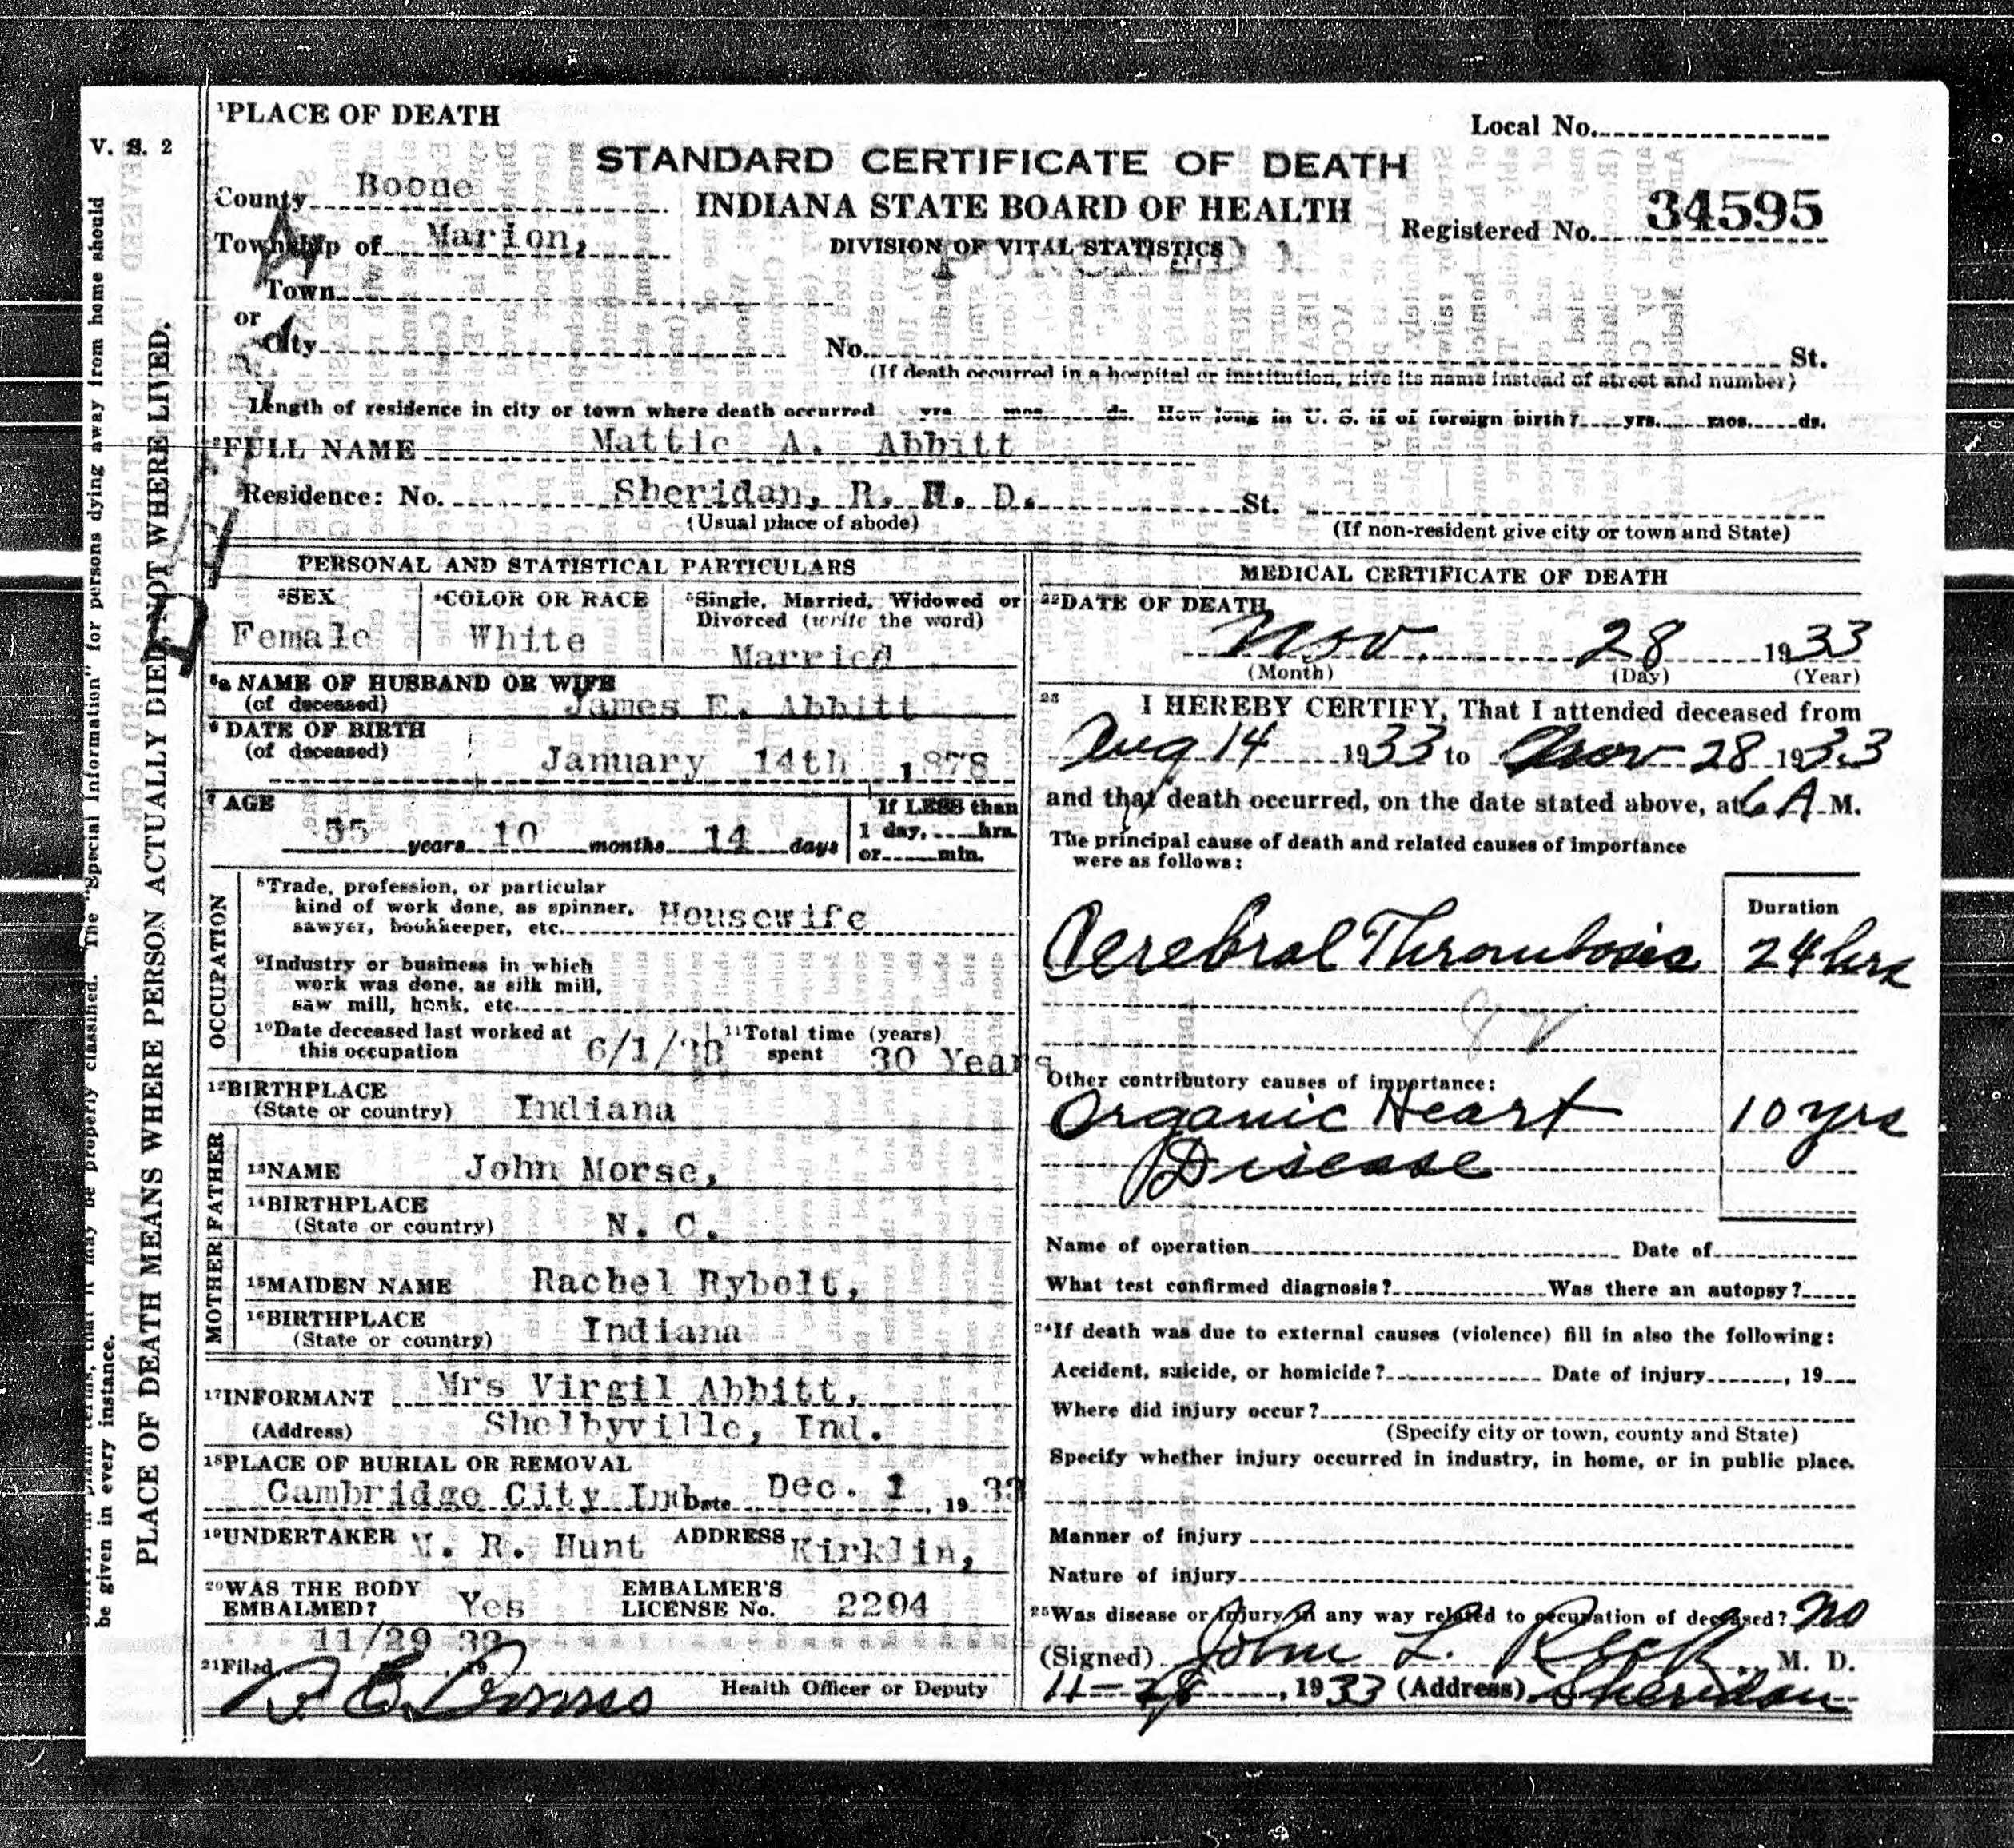 V. S. 2
¹PLACE OF DEATH
Local No.
STANDARD CERTIFICATE OF DEATH
County Boone
INDIANA STATE BOARD OF HEALTH
Registered No. 34595
Township of Marion,
DIVISION OF VITAL STATISTICS
Town
or
City No. St.
(If death occurred in a hospital or institution, give its name instead of street and number)
Length of residence in city or town where death occurred yrs. mos. ds. How long in U. S. if of foreign birth? yrs. mos. ds.
²FULL NAME Mattie A. Abbitt
Residence: No. Sheridan, R. R. D. St.
(Usual place of abode) (If non-resident give city or town and State)
PERSONAL AND STATISTICAL PARTICULARS
³SEX Female
⁴COLOR OR RACE White
⁵Single, Married, Widowed or
Divorced (write the word)
Married
⁵a NAME OF HUSBAND OR WIFE
(of deceased) James E. Abbitt
⁶DATE OF BIRTH
(of deceased) January 14th , 1878
⁷AGE
55 years 10 months 14 days
If LESS than
1 day, hrs.
or min.
OCCUPATION
⁸Trade, profession, or particular
kind of work done, as spinner,
sawyer, bookkeeper, etc. Housewife
⁹Industry or business in which
work was done, as silk mill,
saw mill, bank, etc.
¹⁰Date deceased last worked at
this occupation 6/1/33
¹¹Total time (years)
spent 30 Years
¹²BIRTHPLACE
(State or country) Indiana
FATHER
¹³NAME John Morse,
¹⁴BIRTHPLACE
(State or country) N. C.
MOTHER
¹⁵MAIDEN NAME Rachel Rybolt,
¹⁶BIRTHPLACE
(State or country) Indiana
¹⁷INFORMANT Mrs Virgil Abbitt,
(Address) Shelbyville, Ind.
¹⁸PLACE OF BURIAL OR REMOVAL
Cambridge City Ind. Date Dec. 1 , 19 33
¹⁹UNDERTAKER M. R. Hunt ADDRESS Kirklin,
²⁰WAS THE BODY
EMBALMED? Yes
EMBALMER'S
LICENSE No. 2294
11/29 33
²¹Filed , 19
Health Officer or Deputy
MEDICAL CERTIFICATE OF DEATH
²²DATE OF DEATH
Nov. 28 1933
(Month) (Day) (Year)
²³ I HEREBY CERTIFY, That I attended deceased from
Aug 14 1933 to Nov 28 1933
and that death occurred, on the date stated above, at 6 A M.
The principal cause of death and related causes of importance
were as follows:
Duration
Cerebral Thrombosis 24 hrs
Other contributory causes of importance:
Organic Heart 10 yrs
Disease
Name of operation Date of
What test confirmed diagnosis? Was there an autopsy?
²⁴If death was due to external causes (violence) fill in also the following:
Accident, suicide, or homicide? Date of injury , 19
Where did injury occur?
(Specify city or town, county and State)
Specify whether injury occurred in industry, in home, or in public place.
Manner of injury
Nature of injury
²⁵Was disease or injury in any way related to occupation of deceased? No
(Signed) John L. Reck , M. D.
11-28 , 1933 (Address) Sheridan
PLACE OF DEATH MEANS WHERE PERSON ACTUALLY DIED, NOT WHERE LIVED.
in plain terms, that it may be properly classified. The "Special Information" for persons dying away from home should
be given in every instance.